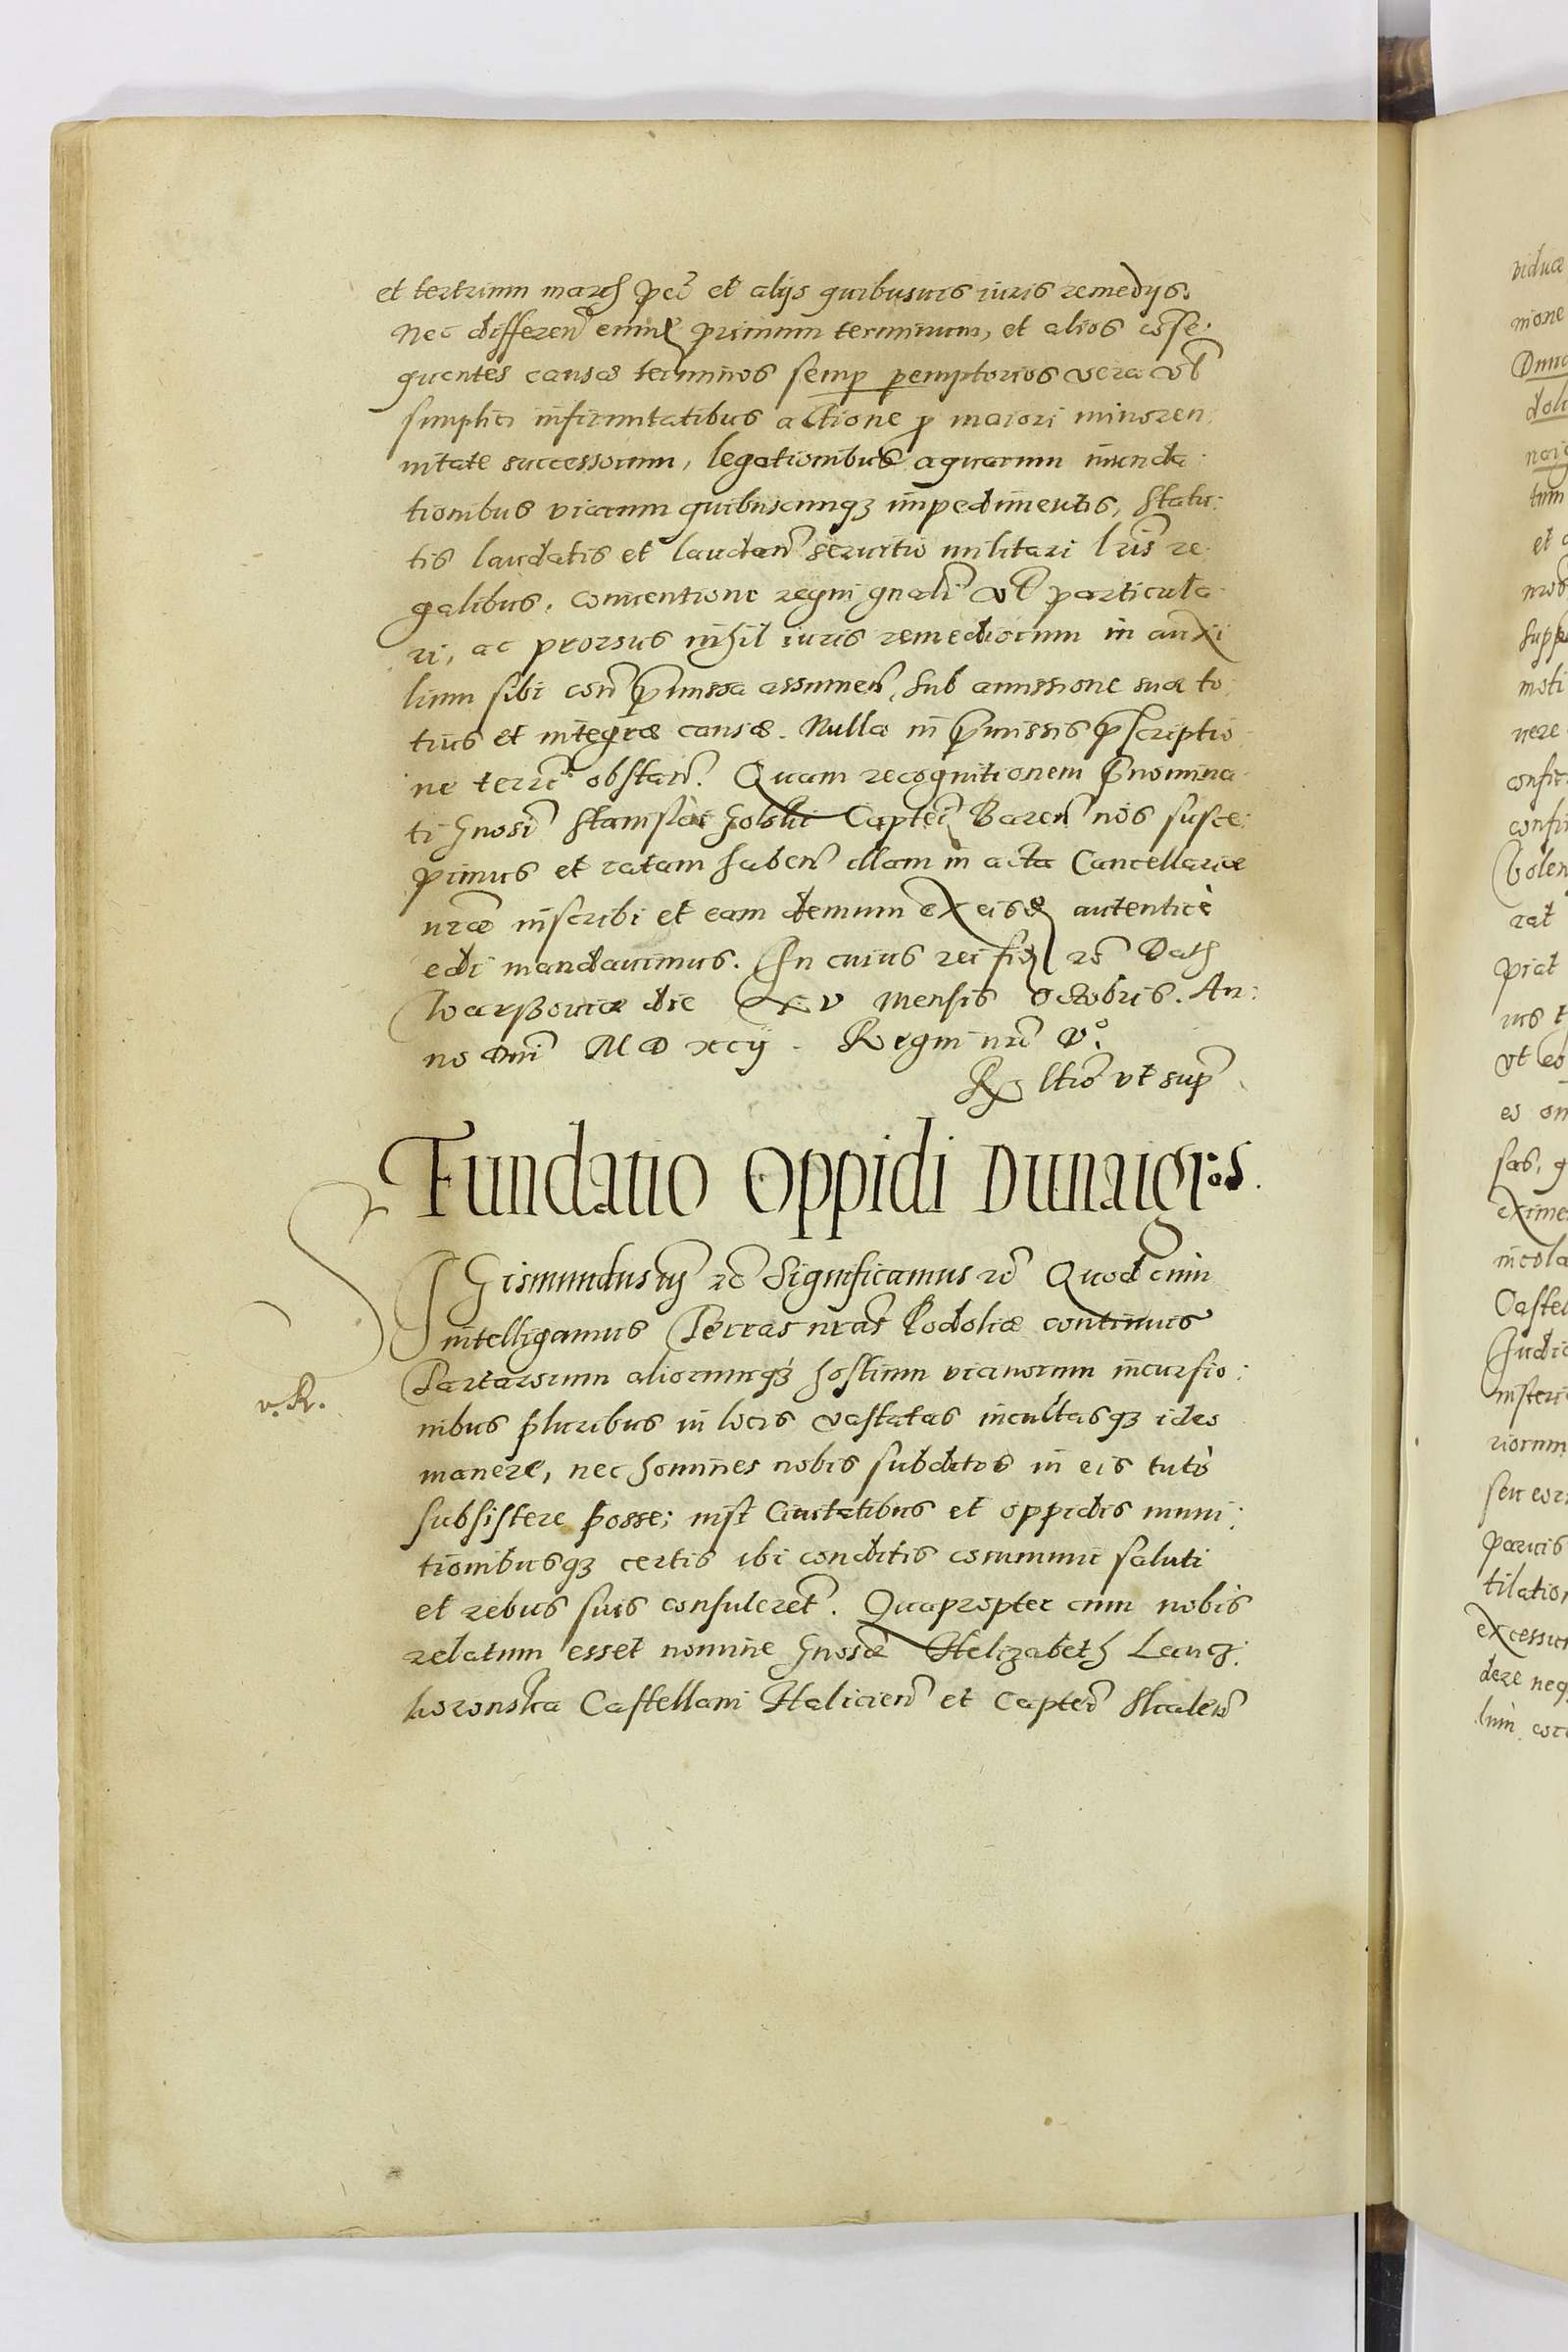 et tertium march pec et alijs quibusuis iuris remedijs.
Nec differen eund primum terminum, et alios conse:
quentes causae terminos semp pemptorios vera vel
simplici infirmitatibus actione p maiori minoren:
nitate successorum, legationibus aquarum inunda:
tionibus viarum quibuscunq impedimentis, statu:
tis laudatis et laudan seruitio militari lris re:
galibus, conuentione regni gnali vel particula:
ri, ac prorsus nihil iuris remediorum in auxi
lium sibi con pmissa assumen, sub amissione suae to:
tius et integrae causae. Nulla in pmissis pscriptio:
ne terrc obstan. Quam recognitionem pnomina:
ti gnosi Stanislai Golski Captei Baren nos susce:
pimus et ratam haben illam in acta Cancellariae
nrae inscribi et eam demum ex eisd autentice
edi mandauimus. In cuius rei fid rc Dat
Warssouiae die xv mensis Octobris. An:
no Dni M D xcij. Regni nri v°.
Rltio vt sup
Fundatio Oppidi Dunaigr:os.
SGismundus tijs rc Significamus rc Quod cum
intelligamus Terras nras Podoliae continuis
Tartarorum aliorumq hostium vicinorum incursio:
v.R.
nibus pluribus in locis vastatas incultasq ideo
manere, nec homines nobis subditos in eis tuto
subsistere posse; nisi Ciuitatibus et oppidis muni:
tionibusq certis ibi conditis communi saluti
et rebus suis consuleret. Quapropter cum nobis
relatum esset nomine gnosae Helizabeth Lancz:
koronska Castellani Halicien et Captei Skalen